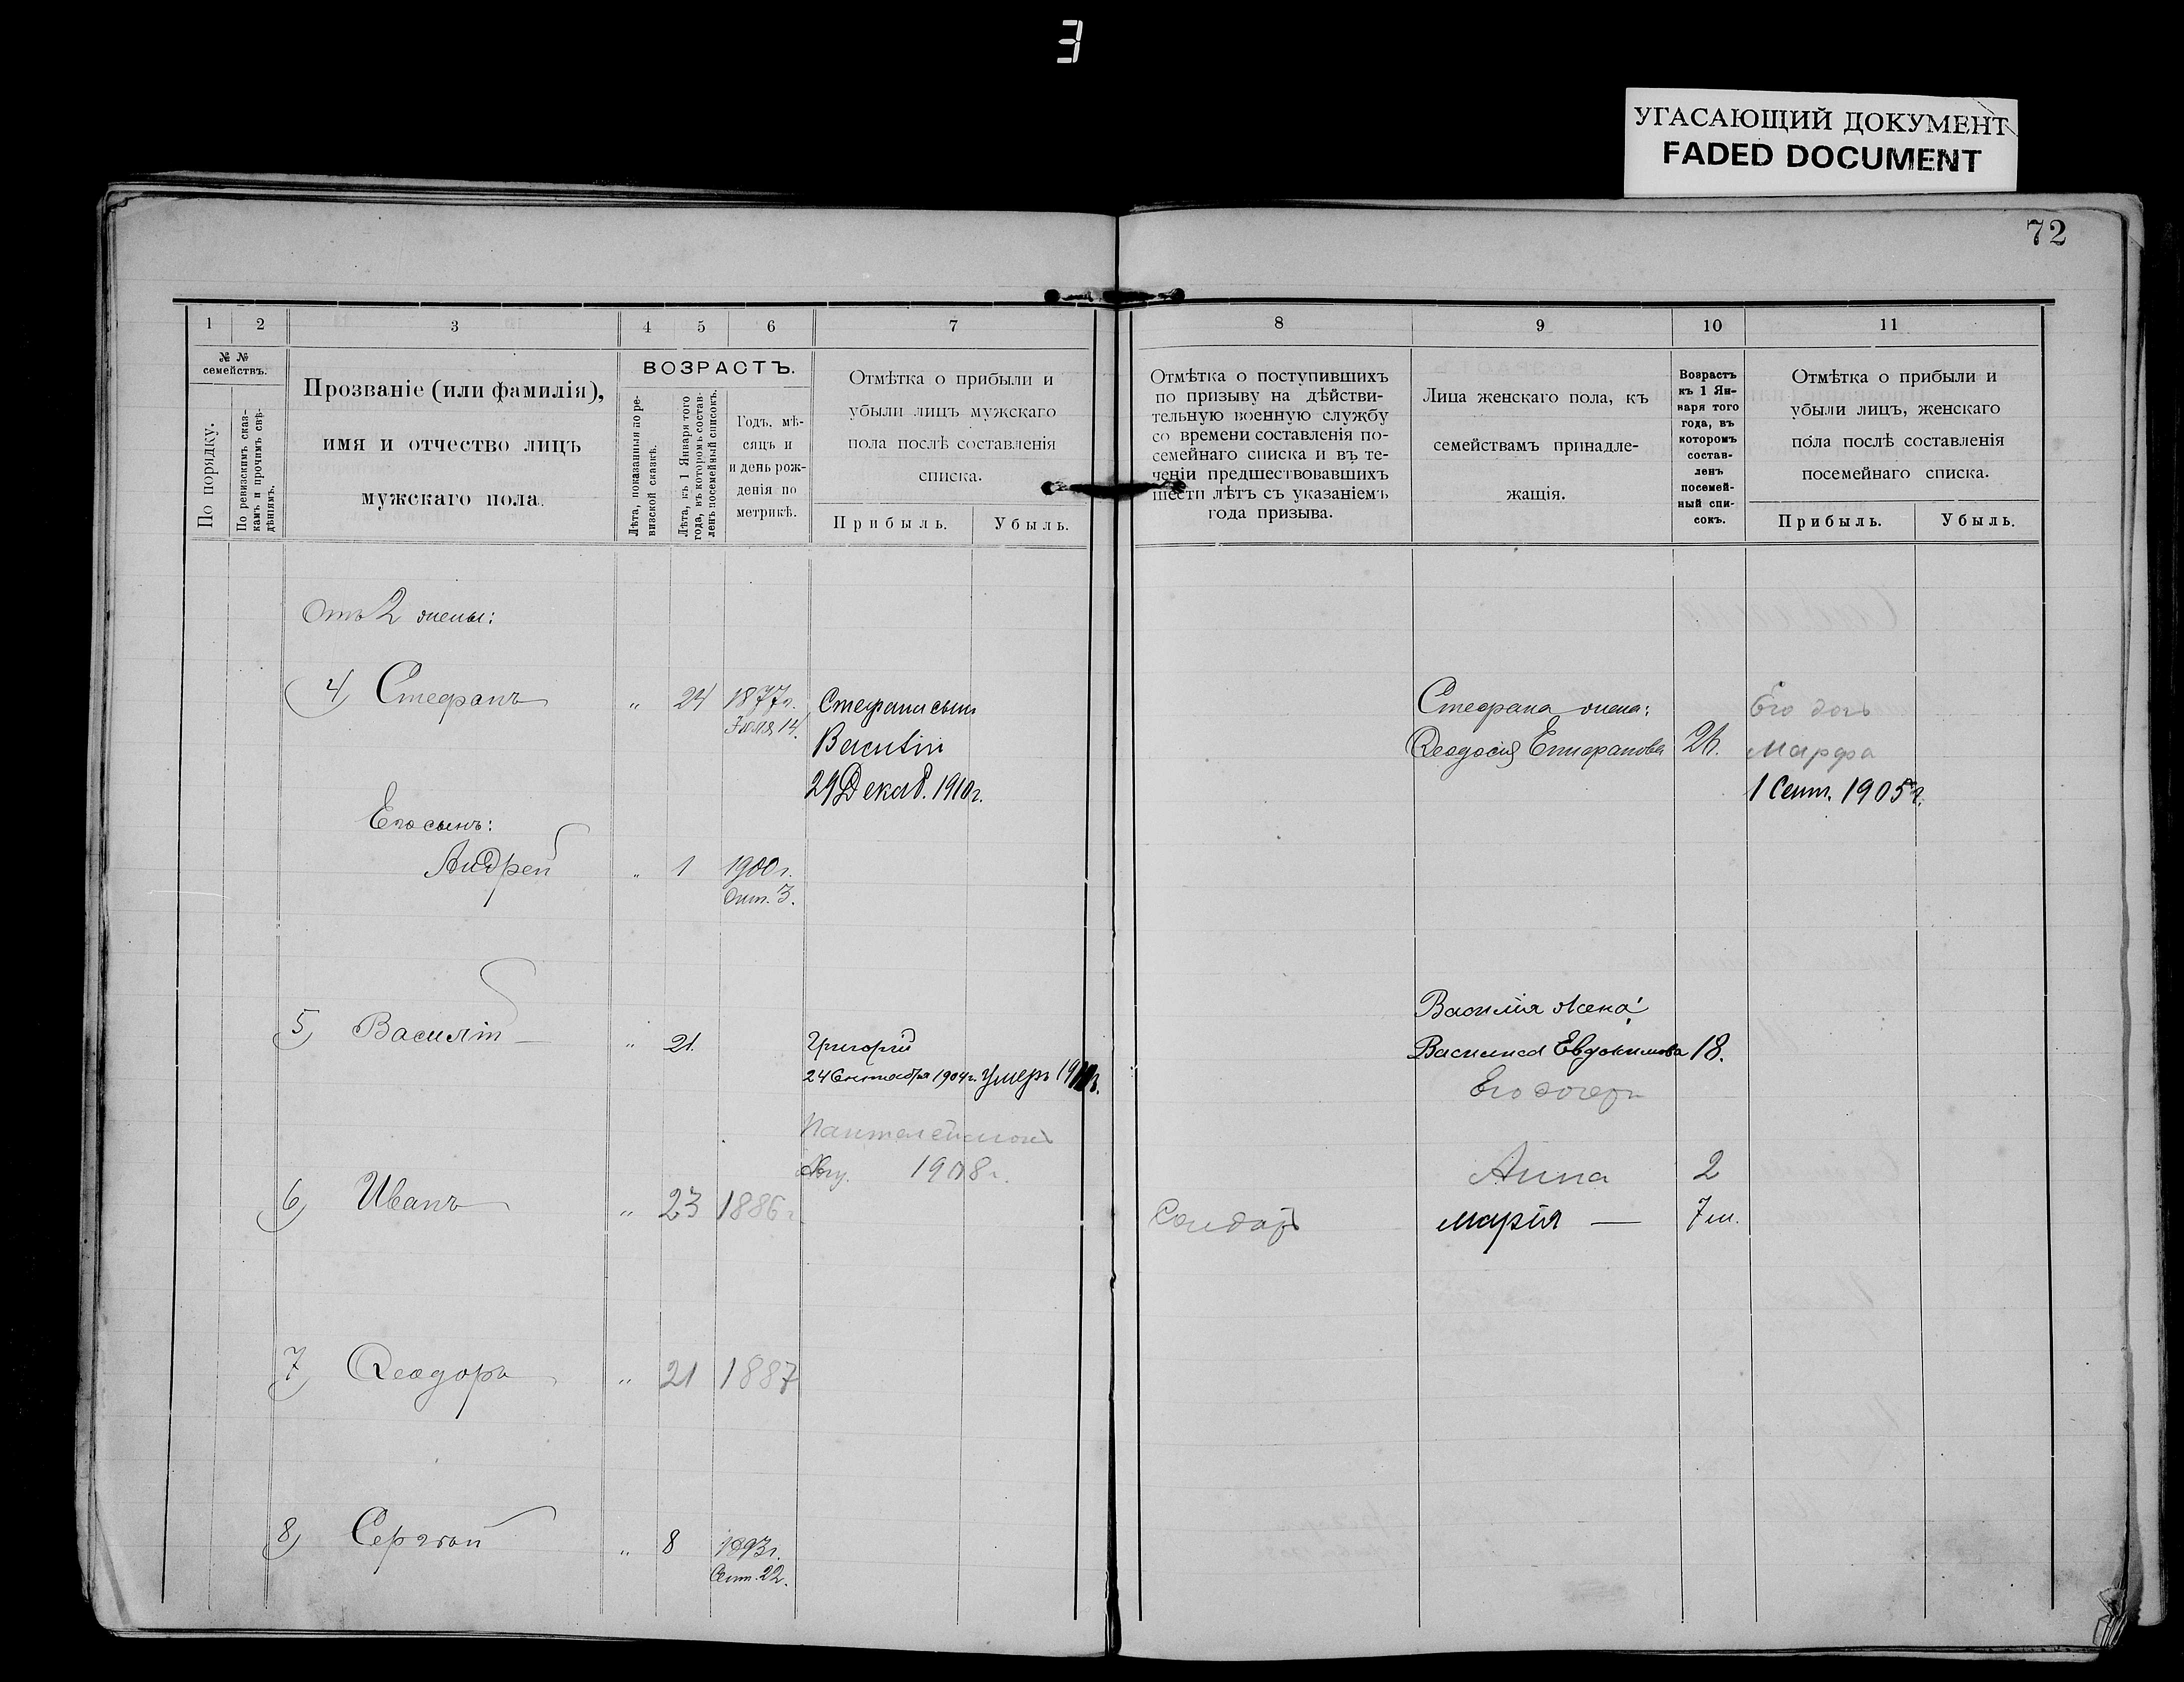 3
УГАСАЮЩИЙ ДОКУМЕНТ
FADED DOCUMENT
72
1
2
3
4
5
6
7
№ №
семействъ.
По порядку.
По ревизскимъ сказ-
камъ и прочимъ свѣ-
дѣніямъ.
Прозваніе (или фамилія),
имя и отчество лицъ
мужскаго пола.
ВОЗРАСТЪ.
Лѣта, показанныя по ре-
визской сказкѣ.
Лѣта, къ 1 Января того
года, въ которомъ состав-
ленъ посемейный списокъ.
Годъ, мѣ-
сяцъ и
и день рож-
денія по
метрикѣ.
Отмѣтка о прибыли и
убыли лицъ мужскаго
пола послѣ составленія
списка.
Прибыль.
Убыль.
8
9
10
11
Отмѣтка о поступившихъ
по призыву на дѣйстви-
тельную военную службу
со времени составленія по-
семейнаго списка и въ те-
ченіи предшествовавшихъ
шести лѣтъ съ указаніемъ
года призыва.
Лица женскаго пола, къ
семействамъ принадле-
жащія.
Возрастъ
къ 1 Ян-
варя того
года, въ
которомъ
состав-
ленъ
посемей-
ный спи-
сокъ.
Отмѣтка о прибыли и
убыли лицъ, женскаго
пола послѣ составленія
посемейнаго списка.
Прибыль.
Убыль.
Отъ 2 жены:
4) Стефанъ " 24 1877г.
Іюля 14.
Стефана сынъ
Василій
29 Декаб. 1910г.
Стефана жена:
Ѳеодосія Епифанова 24.
Его дочь
Марфа
1 Сент. 1905г.
Его сынъ:
Андрей " 1 1900г.
Окт. 3.
5) Василій " 21.
Григорій
24 Сентября 1904г. Умеръ
Пантелеймонъ
1908г.
Василія жена:
Василиса Евдокимова 18.
Его дочери
Анна 2
Марія — 7 м.
6) Иванъ " 23 1886г.
Солдатъ
7) Ѳеодоръ " 21 1887
8) Сергѣй " 8 1893г.
Сент. 22.